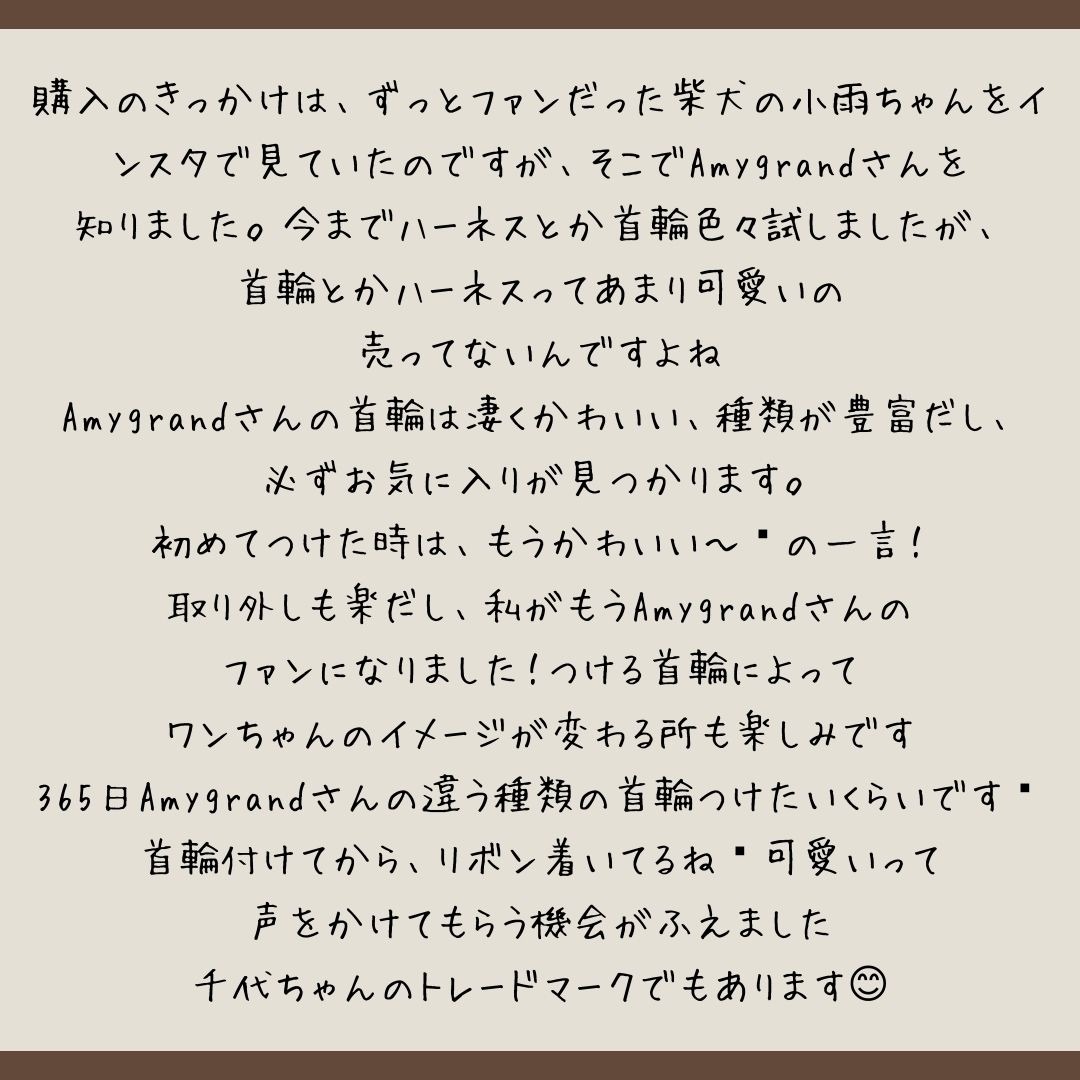 購入のきっかけは、ずっとファンだった柴犬の小雨ちゃんをイ
ンスタで見ていたのですが、そこでAmygrandさんを
知りました。今までハーネスとか首輪色々試しましたが、
首輪とかハーネスってあまり可愛いの
売ってないんですよね
Amygrandさんの首輪は凄くかわいい、種類が豊富だし、
必ずお気に入りが見つかります。
初めてつけた時は、もうかわいい〜▪の一言！
取り外しも楽だし、私がもうAmygrandさんの
ファンになりました！つける首輪によって
ワンちゃんのイメージが変わる所も楽しみです
365日Amygrandさんの違う種類の首輪つけたいくらいです▪
首輪付けてから、リボン着いてるね▪可愛いって
声をかけてもらう機会がふえました
千代ちゃんのトレードマークでもあります😊